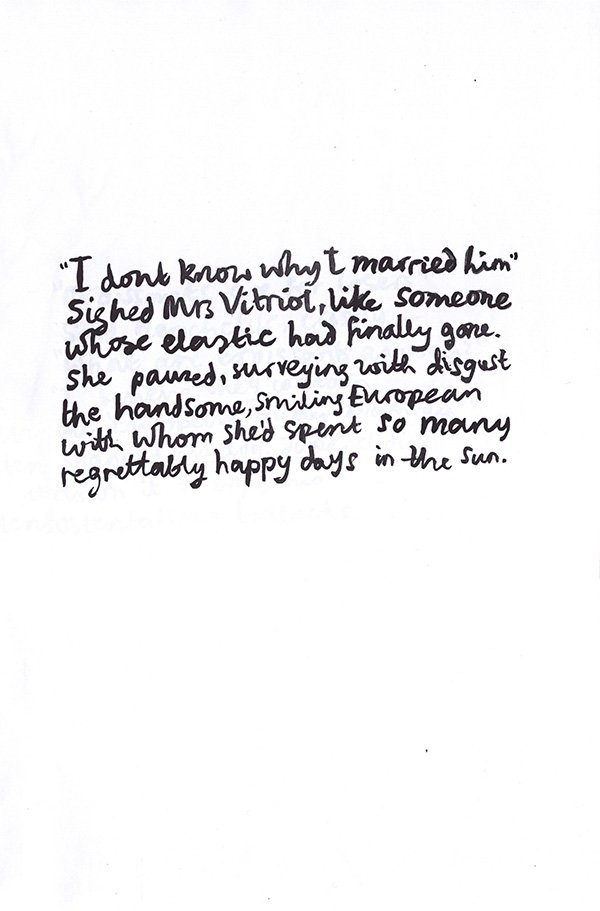 "I dont know why I married him"
Sighed Mrs Vitriol, like someone
whose elastic had finally gone.
She paused, surveying with disgust
the handsome, smiling European
with whom she'd spent so many
regrettably happy days in the sun.